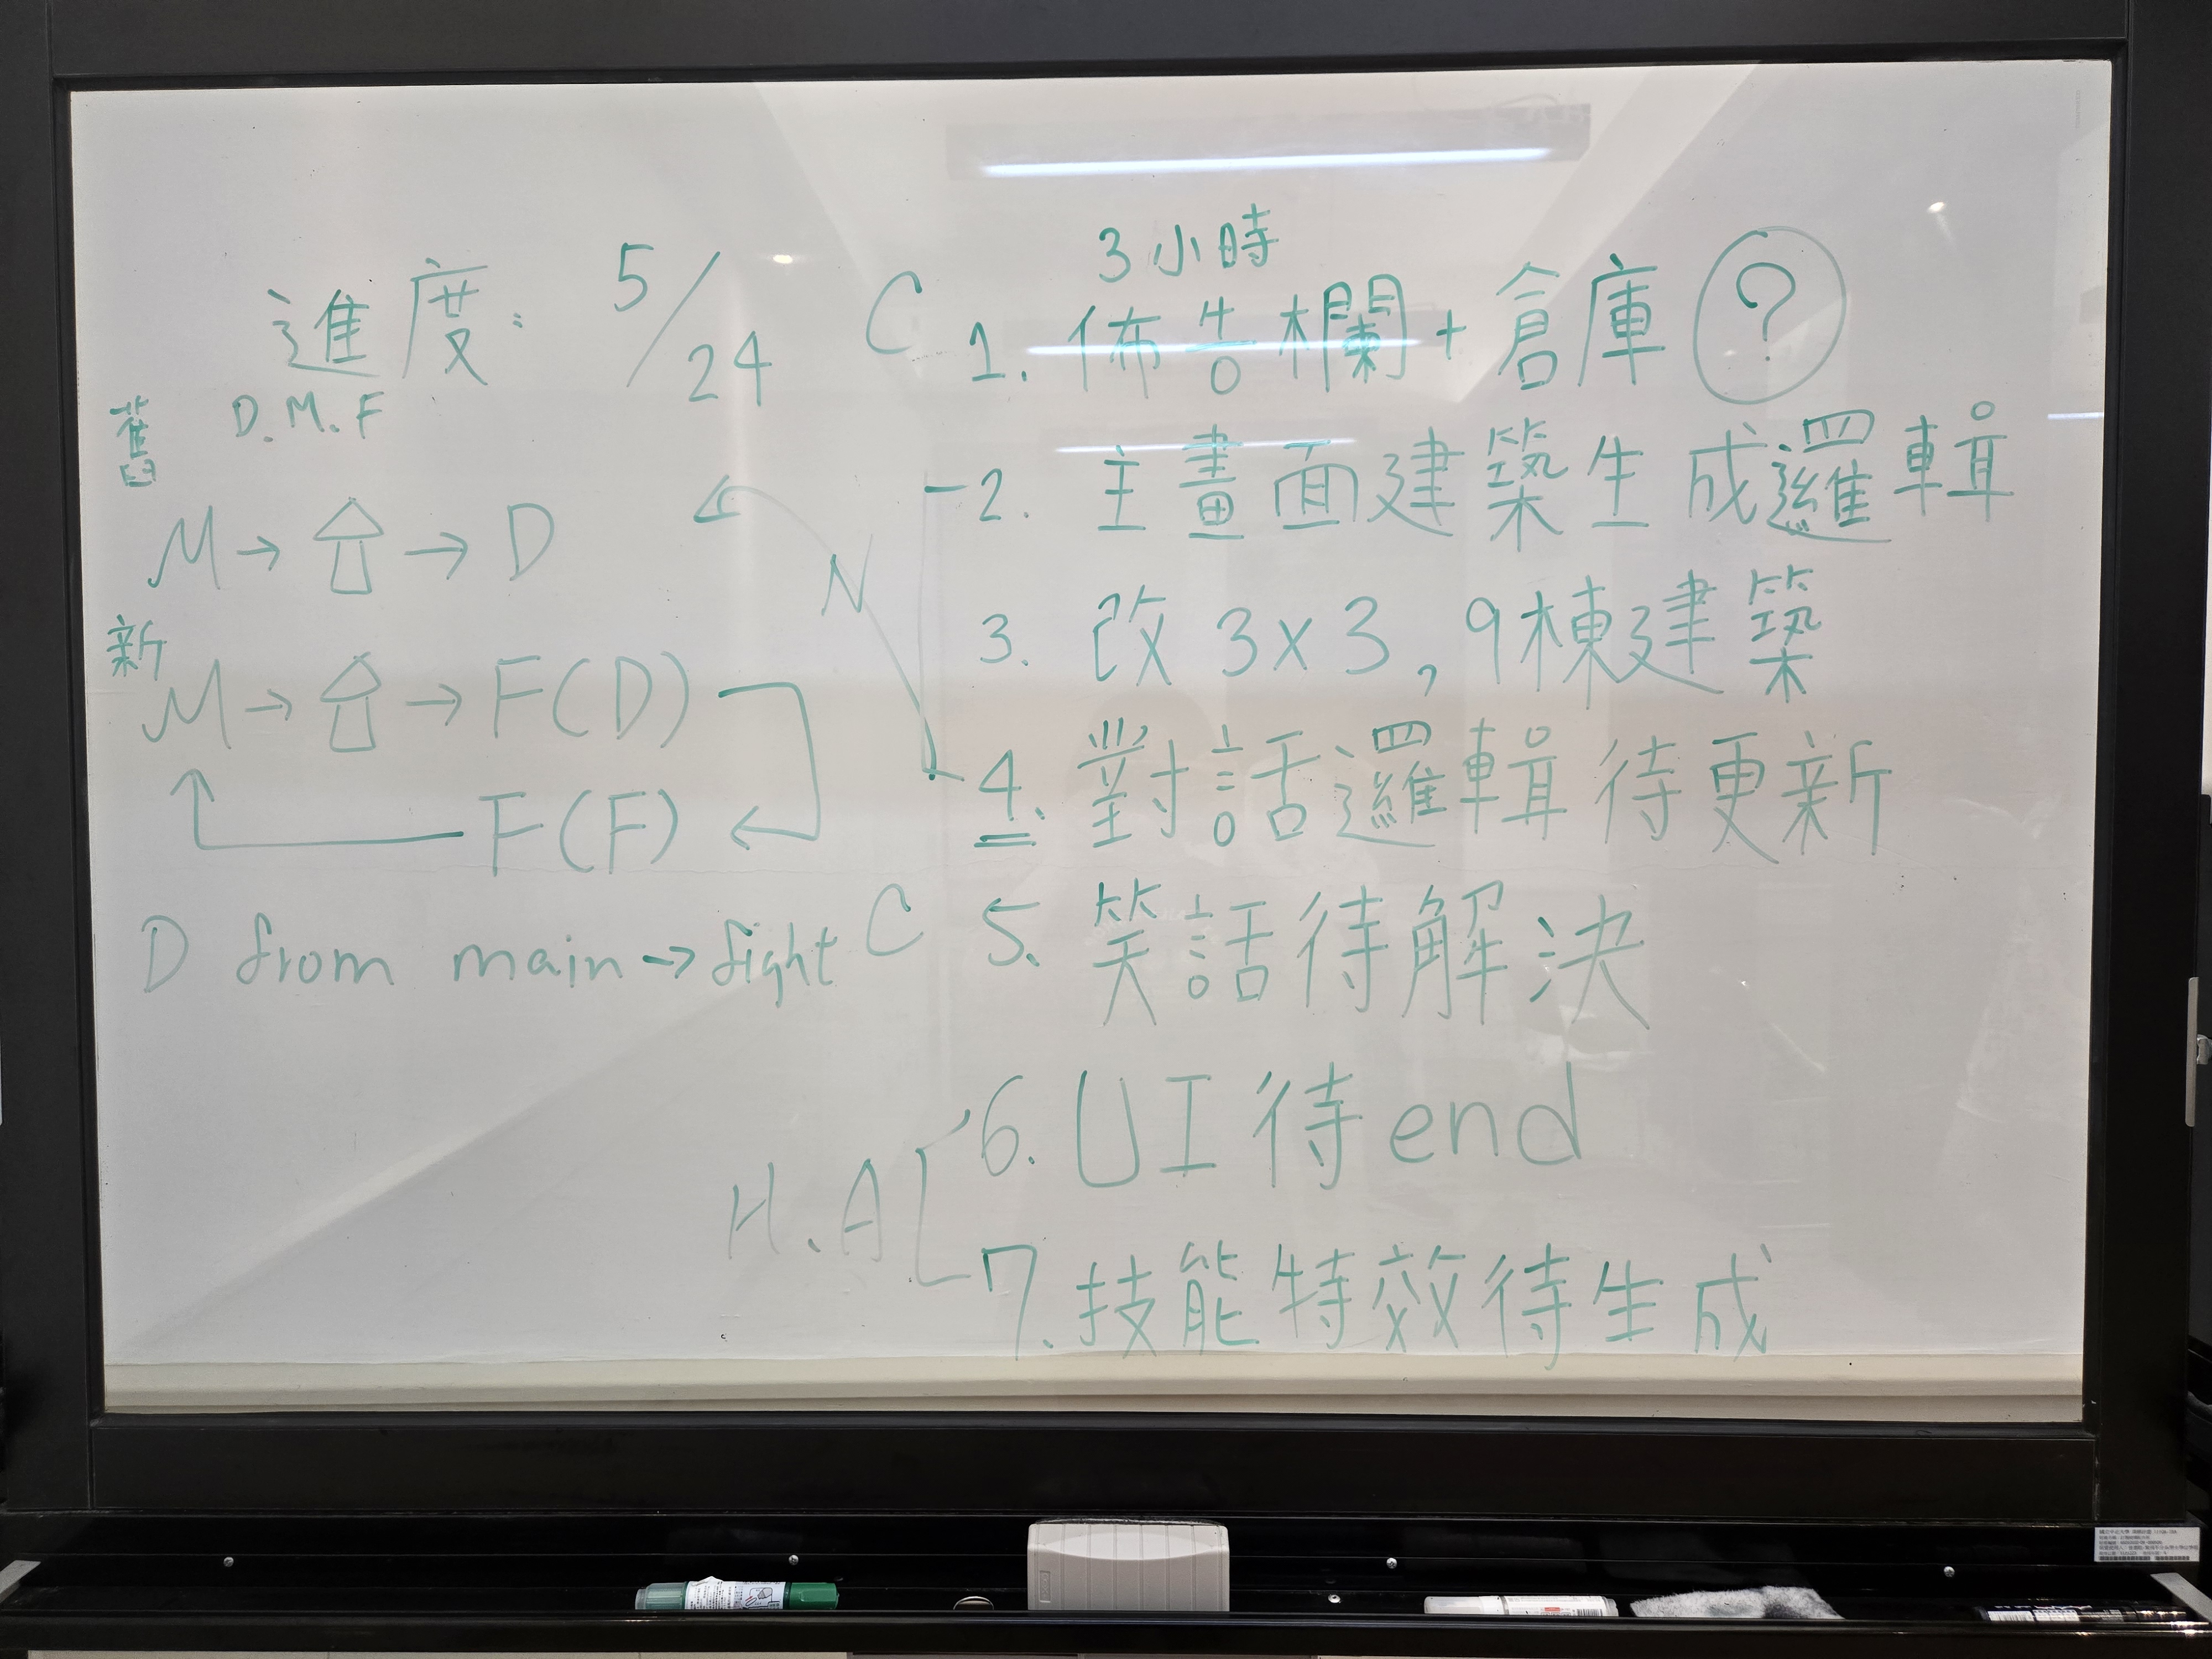 進度: 5/24
舊 D.M.F
M → ⇧ → D
新
M → ⇧ → F(D)
F(F)
D from main → fight
N
3小時
C 1. 佈告欄+倉庫 ?
2. 主畫面建築生成邏輯
3. 改 3x3, 9棟建築
4. 對話邏輯待更新
C 5. 笑話待解決
H.A
6. UI待end
7. 技能特效待生成